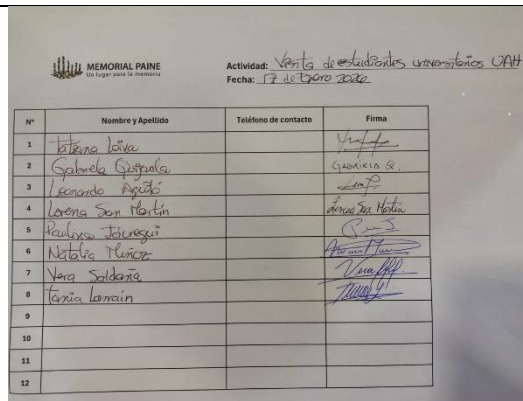 MEMORIAL PAINE
Un lugar para la memoria
Actividad: Visita de estudiantes universitarios UAH
Fecha: 17 de Enero 2026
N° Nombre y Apellido Teléfono de contacto Firma
1 Tatiana
2 Gabriela GABRIELA Q.
3 Leonardo
4 Lorena San Martín Lorena San Martín
5 Paulina Jáuregui
6 Natalia Muñoz
7 Vera Saldaña Vera
8 Tania Larrain
9
10
11
12